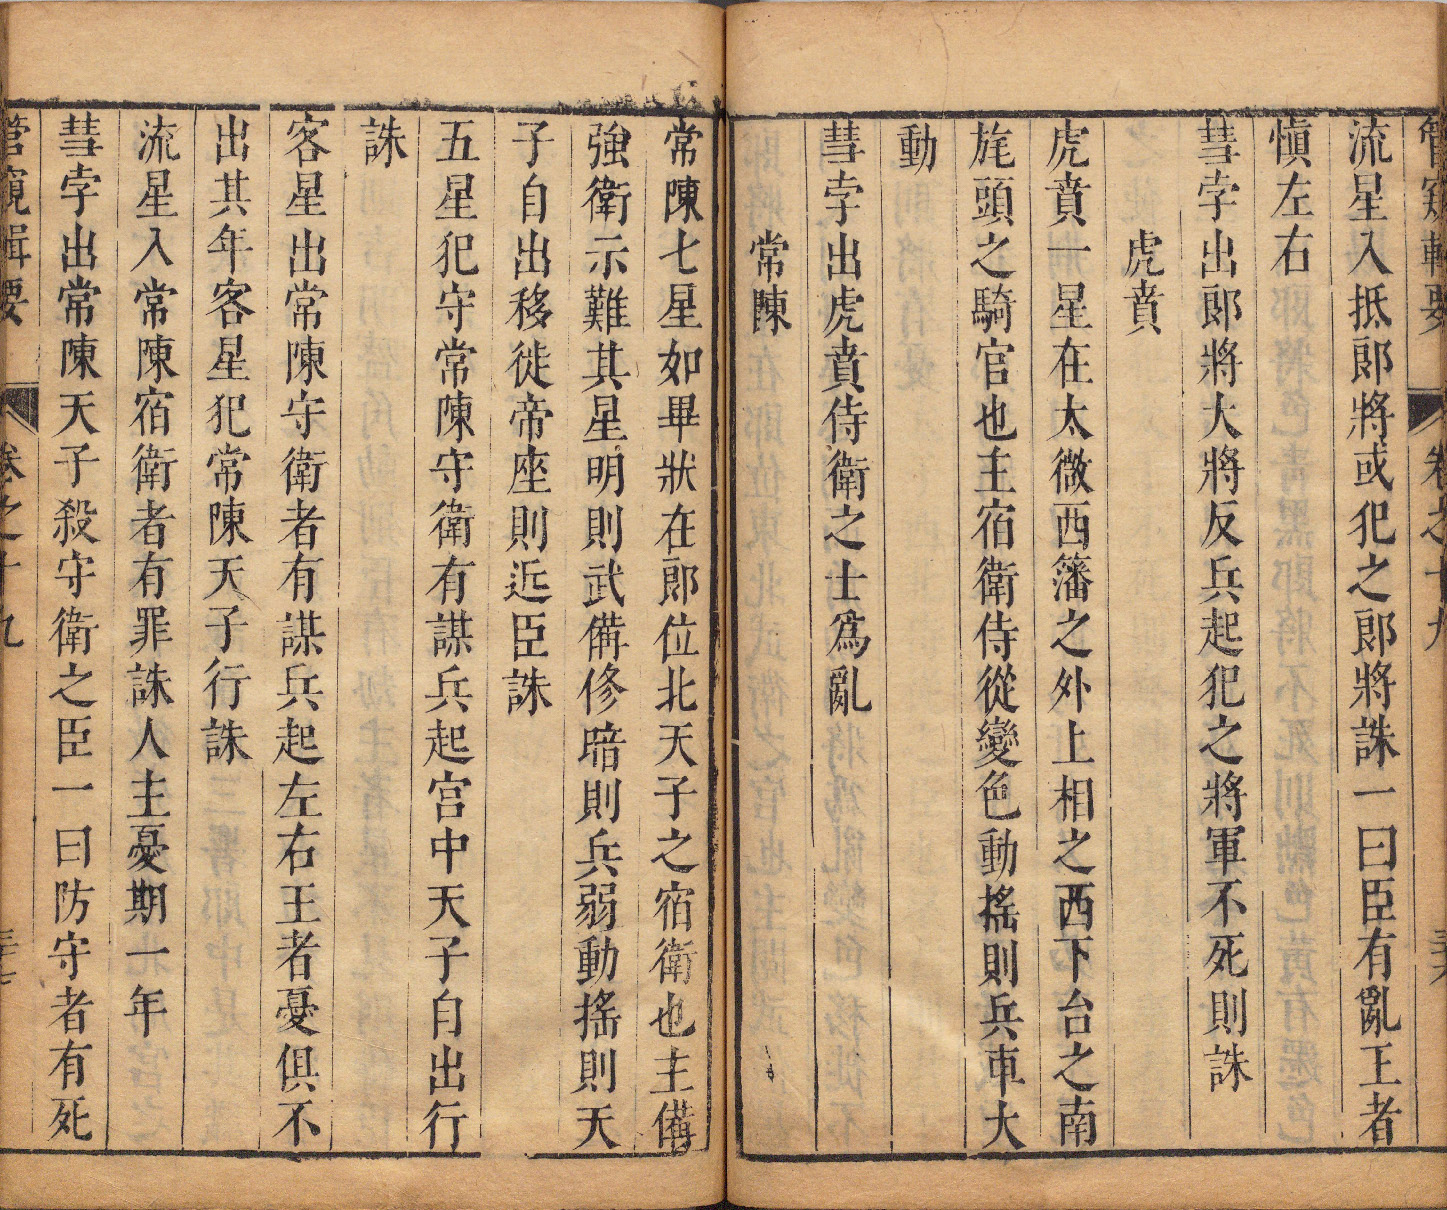 管窺輯要 卷之十九 三十六
流星入抵郎將或犯之郎將誅一曰臣有亂王者
愼左右
彗孛出郎將大將反兵起犯之將軍不死則誅
虎賁
虎賁一星在太微西藩之外上相之西下台之南
旄頭之騎官也主宿衛侍從變色動搖則兵車大
動
彗孛出虎賁侍衛之士爲亂
常陳
常陳七星如畢狀在郎位北天子之宿衛也主備
強衛示難其星明則武備修暗則兵弱動搖則天
子自出移徙帝座則近臣誅
五星犯守常陳守衛有謀兵起宮中天子自出行
誅
客星出常陳守衛者有謀兵起左右王者憂俱不
出其年客星犯常陳天子行誅
流星入常陳宿衛者有罪誅人主憂期一年
彗孛出常陳天子殺守衛之臣一曰防守者有死
管窺輯要 卷之十九 三十七